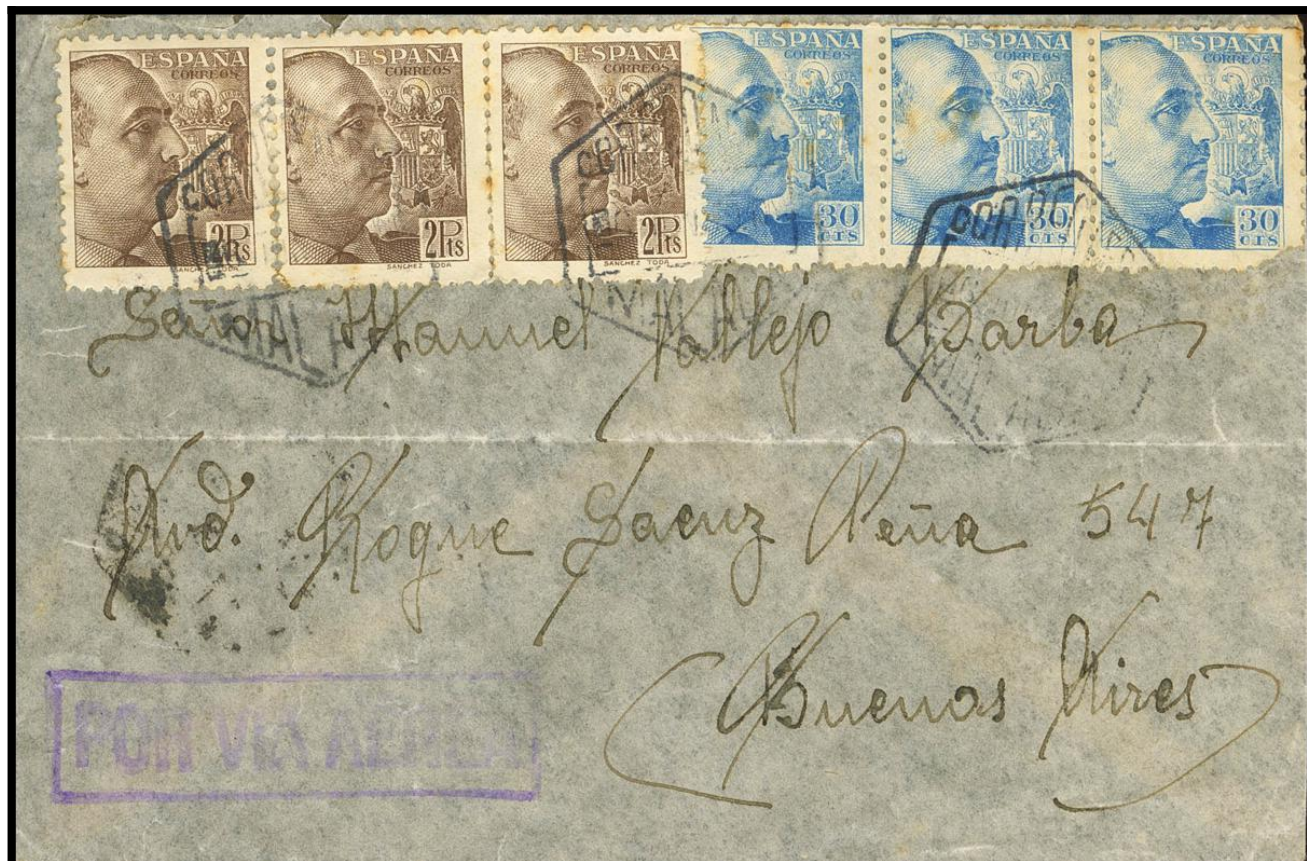 ESPAÑA CORREOS 2Pts SANCHEZ TODA
ESPAÑA CORREOS 2Pts SANCHEZ TODA
ESPAÑA CORREOS 2Pts SANCHEZ TODA
ESPAÑA CORREOS 30 CTS
ESPAÑA CORREOS 30 CTS
ESPAÑA CORREOS 30 CTS
Señor Manuel Vallejo Barba
Avd. Roque Saenz Peña 547
Buenos Aires
POR VIA AEREA